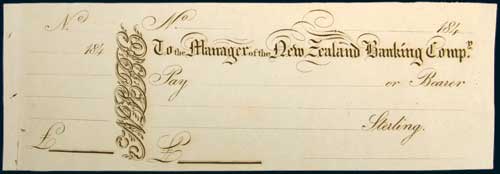 Nº
184
£
Nº 184
To the Manager of the New Zealand Banking Compʸ.
Pay or Bearer
Sterling.
£